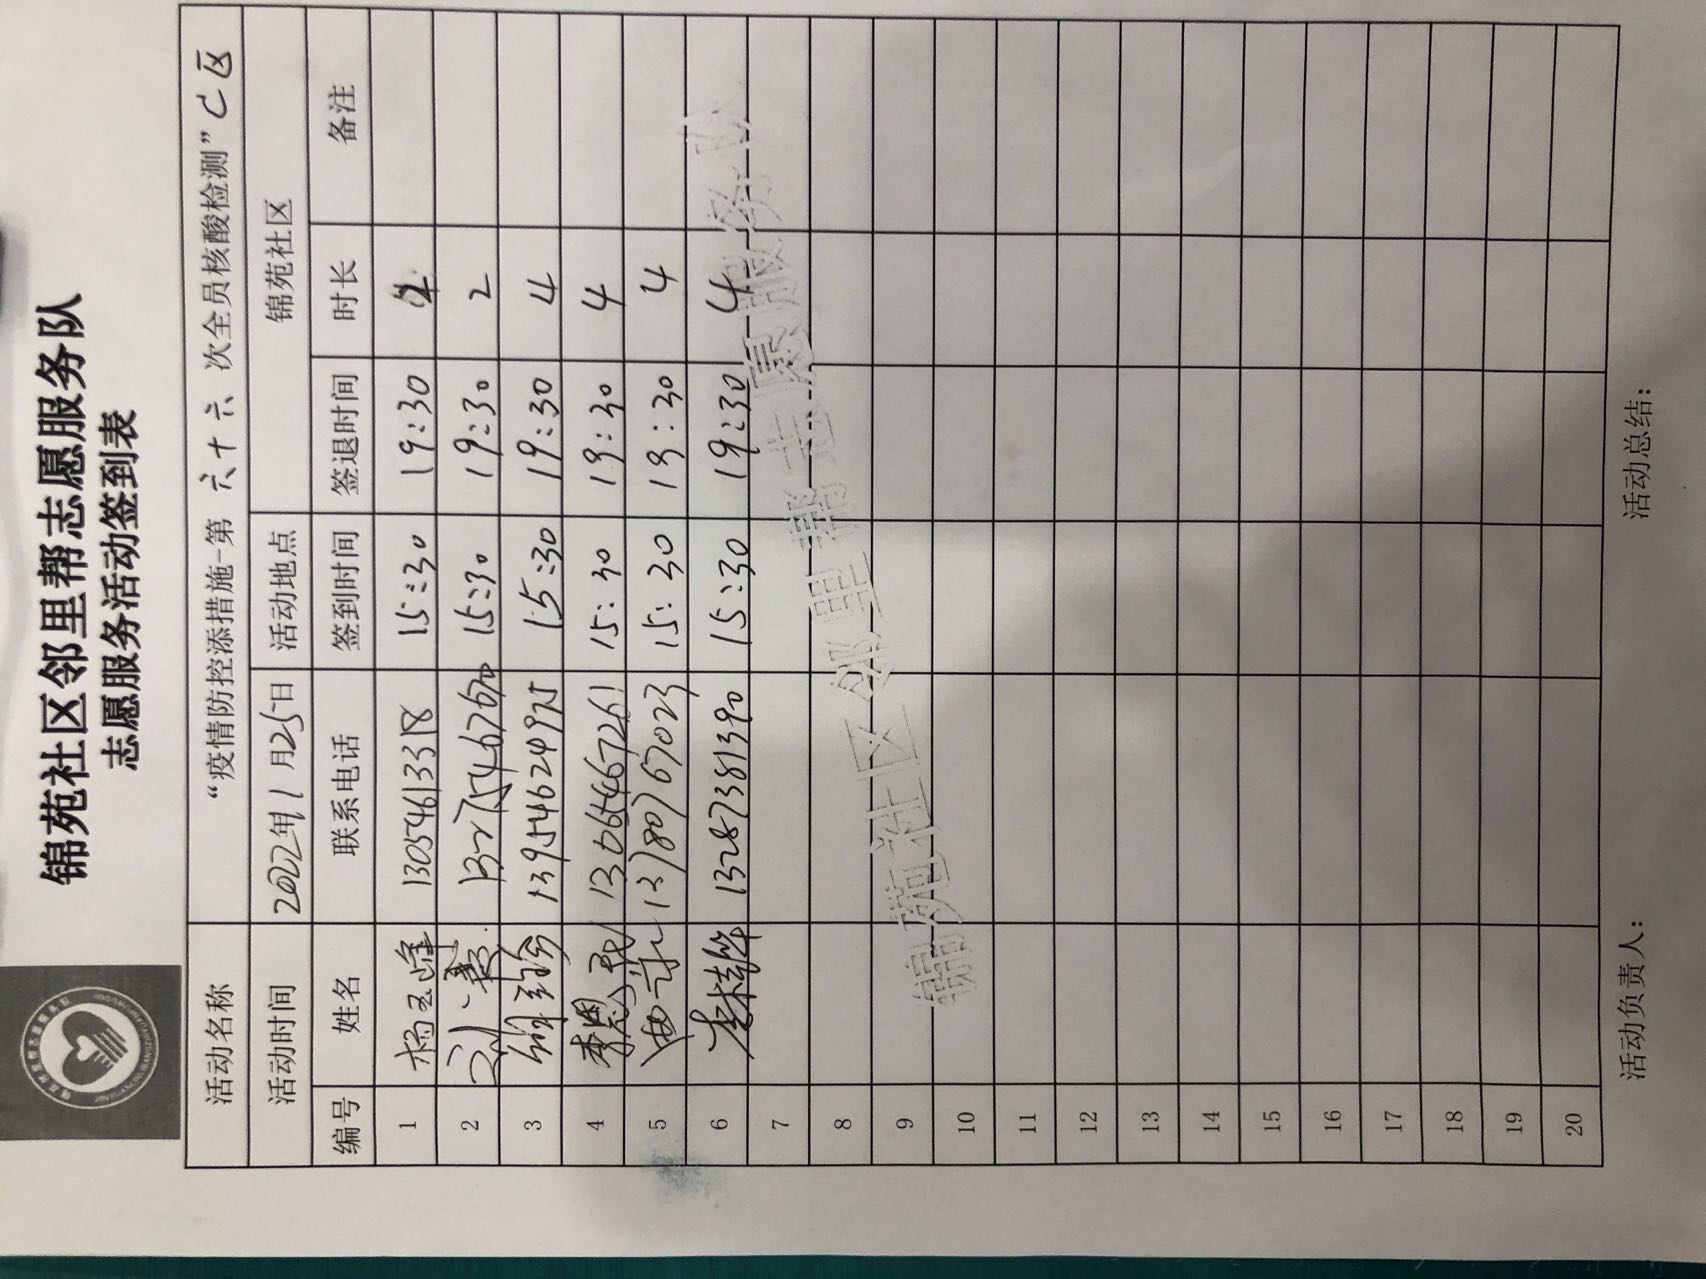 锦苑社区邻里帮志愿服务队
志愿服务活动签到表
活动名称 “疫情防控添措施-第 六十六 次全员核酸检测” C区
活动时间 2022年1月25日 活动地点 锦苑社区
编号 姓名 联系电话 签到时间 签退时间 时长 备注
1 杨玉峰 13054613318 15:30 19:30
2 15:30 19:30 2
3 13954624975 15:30 19:30 4
4 李恩 13666467261 15:30 19:30 4
5 15:30 19:30 4
6 李桂 13287381390 15:30 19:30 4
7
8
9
10
11
12
13
14
15
16
17
18
19
20
活动负责人： 活动总结：
锦苑社区邻里帮志愿服务队